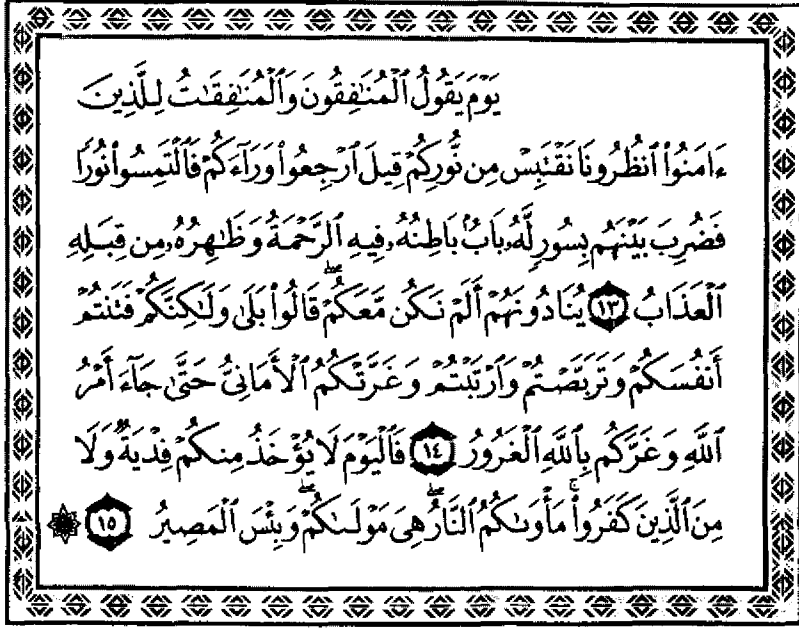 يَوْمَ يَقُولُ ٱلْمُنَٰفِقُونَ وَٱلْمُنَٰفِقَٰتُ لِلَّذِينَ
ءَامَنُوا۟ ٱنظُرُونَا نَقْتَبِسْ مِن نُّورِكُمْ قِيلَ ٱرْجِعُوا۟ وَرَآءَكُمْ فَٱلْتَمِسُوا۟ نُورًا
فَضُرِبَ بَيْنَهُم بِسُورٍ لَّهُۥ بَابٌۢ بَاطِنُهُۥ فِيهِ ٱلرَّحْمَةُ وَظَٰهِرُهُۥ مِن قِبَلِهِ
ٱلْعَذَابُ ١٣ يُنَادُونَهُمْ أَلَمْ نَكُن مَّعَكُمْ ۖ قَالُوا۟ بَلَىٰ وَلَٰكِنَّكُمْ فَتَنتُمْ
أَنفُسَكُمْ وَتَرَبَّصْتُمْ وَٱرْتَبْتُمْ وَغَرَّتْكُمُ ٱلْأَمَانِىُّ حَتَّىٰ جَآءَ أَمْرُ
ٱللَّهِ وَغَرَّكُم بِٱللَّهِ ٱلْغَرُورُ ١٤ فَٱلْيَوْمَ لَا يُؤْخَذُ مِنكُمْ فِدْيَةٌ وَلَا
مِنَ ٱلَّذِينَ كَفَرُوا۟ ۚ مَأْوَىٰكُمُ ٱلنَّارُ ۖ هِىَ مَوْلَىٰكُمْ ۖ وَبِئْسَ ٱلْمَصِيرُ ١٥